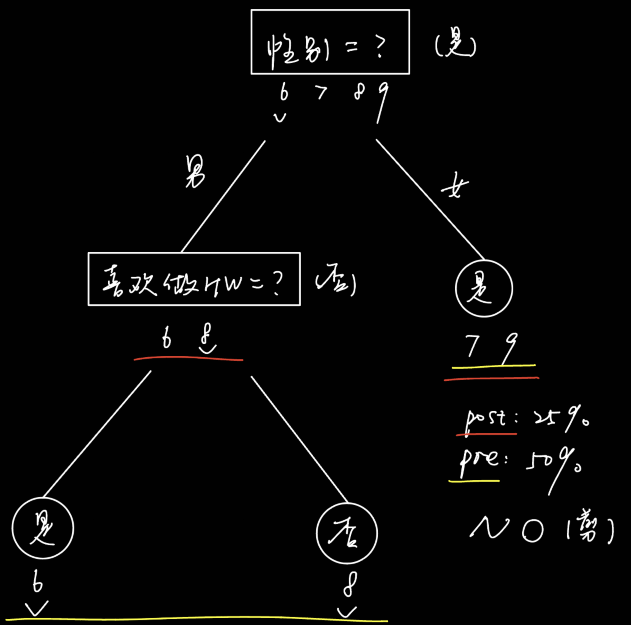 性别=? (是)
6 7 8 9
男
女
喜欢做HW=? (否)
是
6 8
7 9
post: 25%
pre: 50%
NO (剪)
是
否
6
8